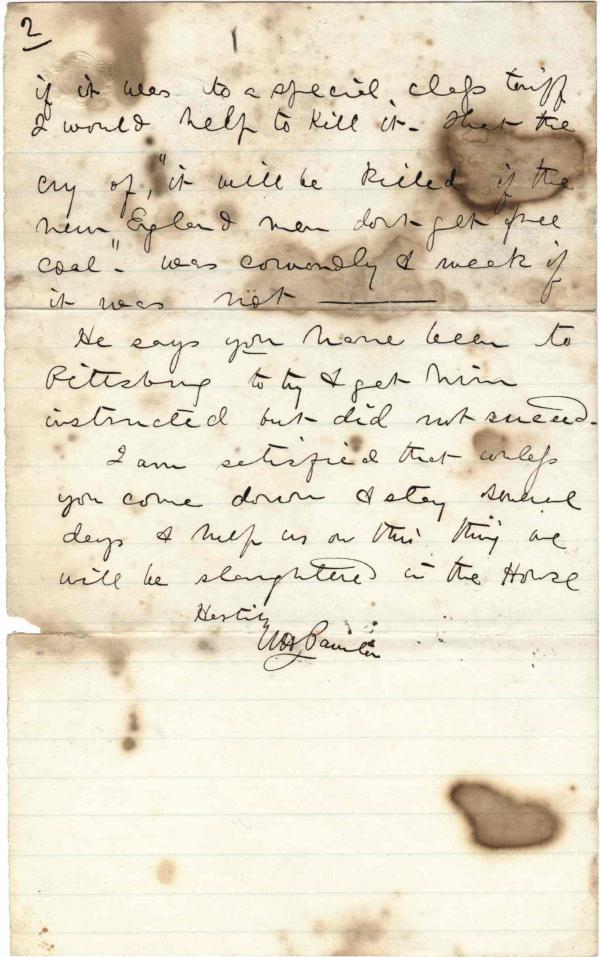 2
if it was to a special class tariff
I would help to kill it - that the
cry of, "it will be killed if the
new England men dont get free
coal" - was cowardly & weak if
it was not
He says you have been to
Pittsburg to try & get him
instructed but did not succeed.
I am satisfied that unless
you come down & stay several
days & help us on this thing we
will be slaughtered in the House
Hastily
WH Painter